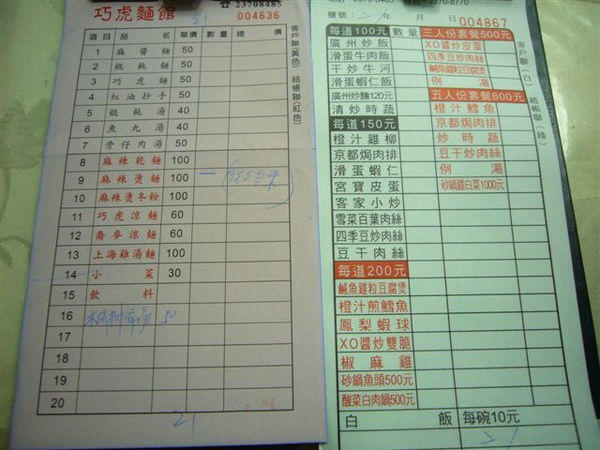 巧虎麵館
☎23708485
21
004636
項目 品名 單價 數量 總價
1 麻醬麵 50
2 餛飩麵 50
3 巧虎麵 50
4 紅油抄手 50
5 餛飩湯 40
6 魚丸湯 40
7 骨仔肉湯 50
8 麻辣乾麵 100
9 麻辣燙麵 100 一
10 麻辣燙冬粉 100
11 巧虎涼麵 60
12 蕎麥涼麵 60
13 上海雞湯麵 100
14 小菜 30
15 飲料
16 50
17
18
19
20
21
客戶聯(黃色) 結帳聯(紅色)
2370-8770
櫃號: 21 年 月 日
004867
每道100元 數量
廣州炒飯
滑蛋牛肉飯
干炒牛河
滑蛋蝦仁飯
廣州炒麵120元
清炒時蔬
每道150元
橙汁雞柳
京都焗肉排
滑蛋蝦仁
宮寶皮蛋
客家小炒
雪菜百葉肉絲
四季豆炒肉絲
豆干肉絲
每道200元
鹹魚雞粒豆腐煲
橙汁煎鱈魚
鳳梨蝦球
XO醬炒雙脆
椒麻雞
砂鍋魚頭500元
酸菜白肉鍋500元
三人份套餐500元
XO醬炒皮蛋
四季豆炒肉絲
鹹魚雞粒豆腐煲
例湯
五人份套餐800元
橙汁鱈魚
京都焗肉排
炒時蔬
豆干炒肉絲
例湯
砂鍋雞白菜1000元
白飯 每碗10元
21
客戶聯(白) 結帳聯(綠)